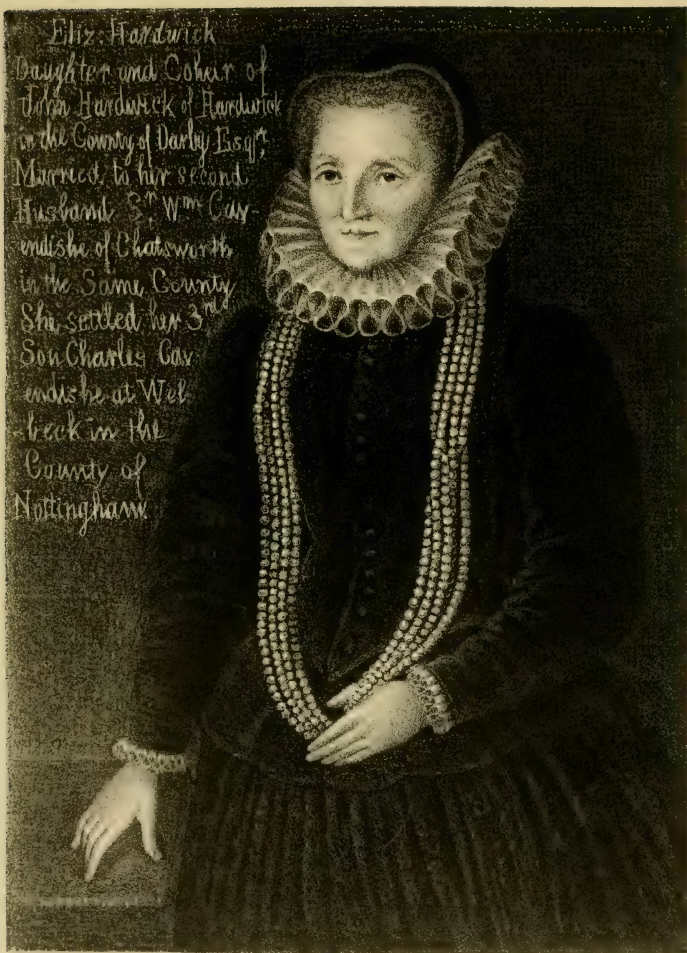 Eliz: Hardwick
Daughter and Coheir of
John Hardwick of Hardwick
in the County of Darby Esqr.
Married to her second
Husband Sr. Wm Cav-
endishe of Chatsworth
in the Same County
She settled her 3rd
Son Charles Cav
endishe at Wel
-beck in the
County of
Nottingham